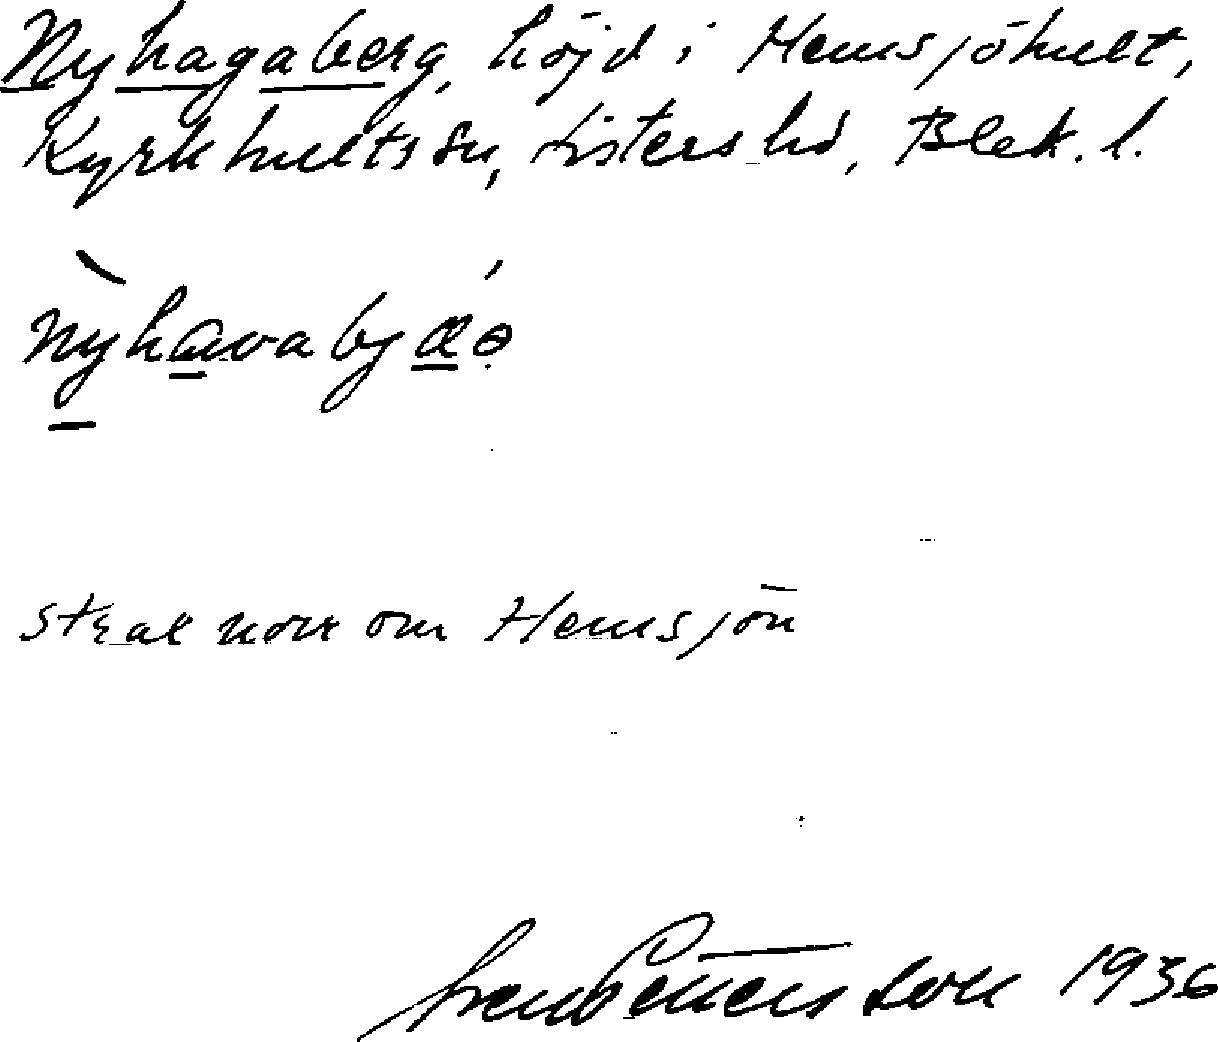 Nyhagaberg, höjd i Hemsjöhult,
Kyrkhults sn, Listers hd, Blek. l.
strax norr om Hemsjön
Pettersson 1936